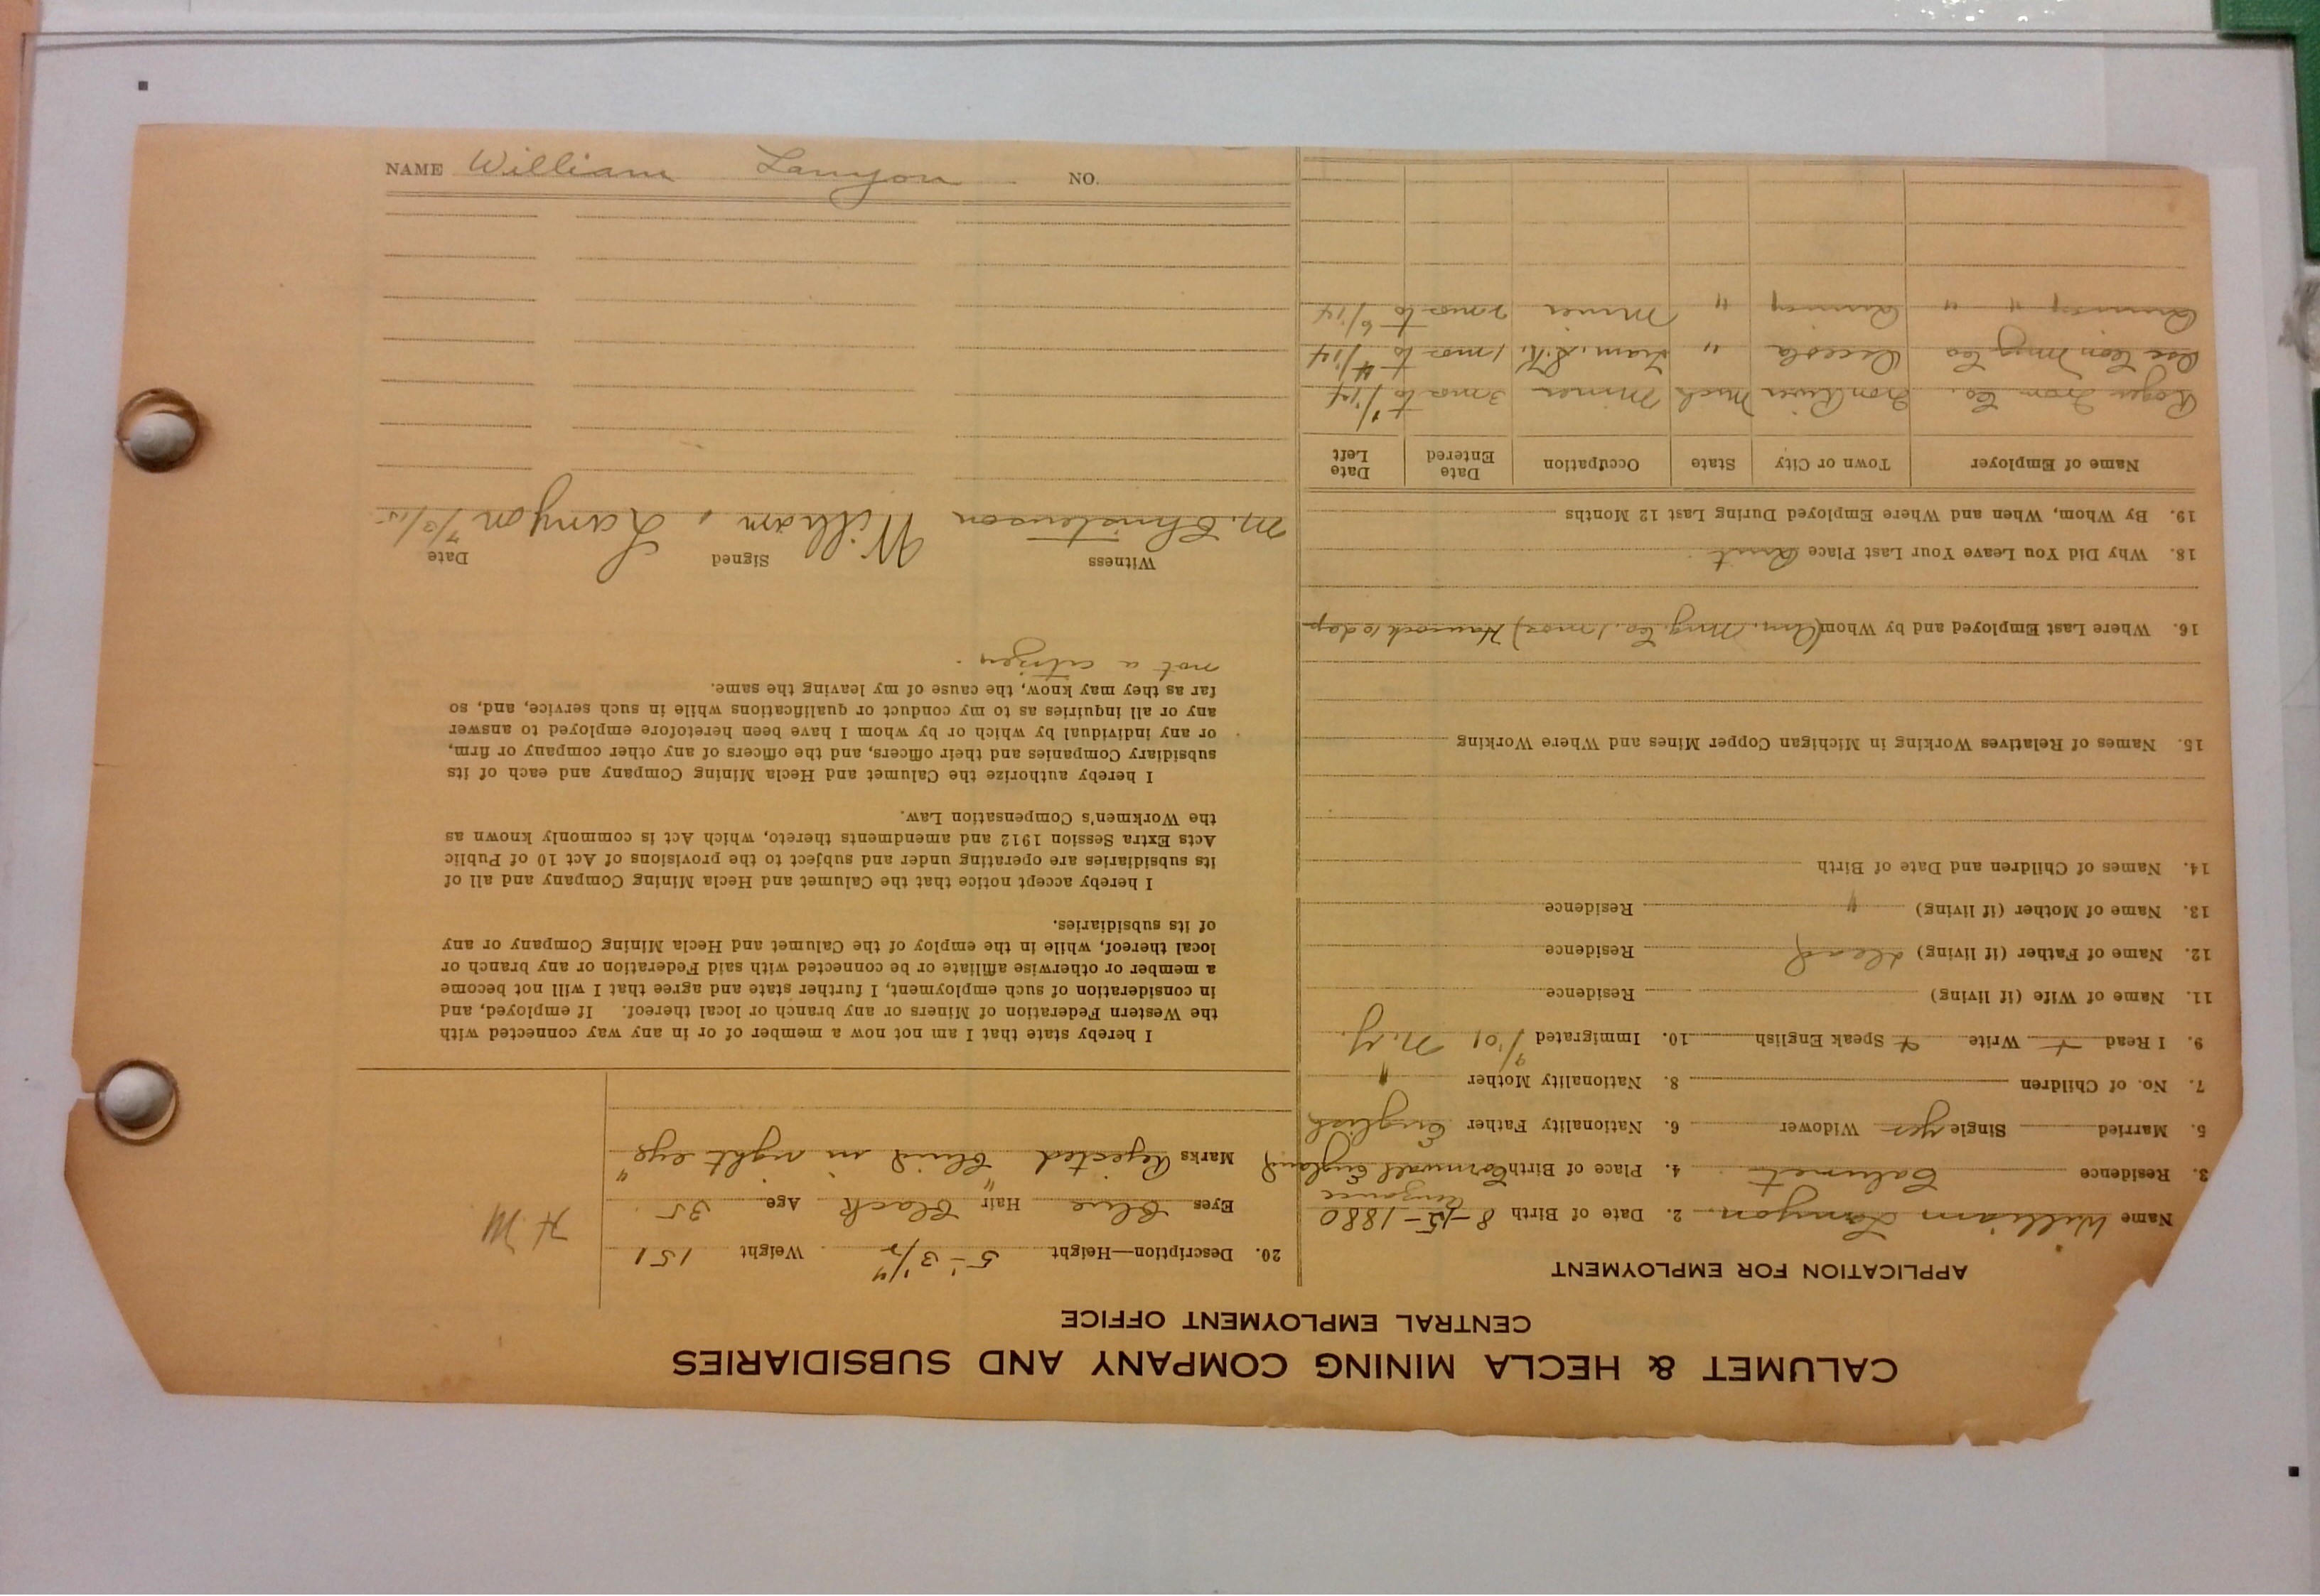 CALUMET & HECLA MINING COMPANY AND SUBSIDIARIES
CENTRAL EMPLOYMENT OFFICE
APPLICATION FOR EMPLOYMENT
Name William Lanyon 2. Date of Birth 8-15-1880
3. Residence Calumet 4. Place of Birth Cornwall England
5. Married Single yes Widower 6. Nationality Father English
7. No. of Children 8. Nationality Mother "
9. I Read + Write + Speak English 10. Immigrated 9/'01 N.Y.
11. Name of Wife (if living) Residence
12. Name of Father (if living) dead Residence
13. Name of Mother (if living) " Residence
14. Names of Children and Date of Birth
15. Names of Relatives Working in Michigan Copper Mines and Where Working
16. Where Last Employed and by Whom (Ann. Mng. Co. 1 mos) Hancock 10 days
18. Why Did You Leave Your Last Place Quit
19. By Whom, When and Where Employed During Last 12 Months
Name of Employer Town or City State Occupation Date Entered Date Left
Iron Co. Iron River Mich Miner 3 mos to 1/'14
Osc Con Mng Co Osceola " Tram. S.K. 1 mos to 4/'14
Quincy " " Quincy " Miner 2 mos to 6/'14
20. Description—Height 5'-3 1/4" Weight 151
Eyes Blue Hair Black Age 35
Marks Rejected "blind in right eye"
H M
I hereby state that I am not now a member of or in any way connected with
the Western Federation of Miners or any branch or local thereof. If employed, and
in consideration of such employment, I further state and agree that I will not become
a member or otherwise affiliate or be connected with said Federation or any branch or
local thereof, while in the employ of the Calumet and Hecla Mining Company or any
of its subsidiaries.
I hereby accept notice that the Calumet and Hecla Mining Company and all of
its subsidiaries are operating under and subject to the provisions of Act 10 of Public
Acts Extra Session 1912 and amendments thereto, which Act is commonly known as
the Workmen's Compensation Law.
I hereby authorize the Calumet and Hecla Mining Company and each of its
subsidiary Companies and their officers, and the officers of any other company or firm,
or any individual by which or by whom I have been heretofore employed to answer
any or all inquiries as to my conduct or qualifications while in such service, and, so
far as they may know, the cause of my leaving the same.
not a citizen.
Witness Signed Date
M. Christenson William Lanyon 7/3/15
NAME William Lanyon NO.